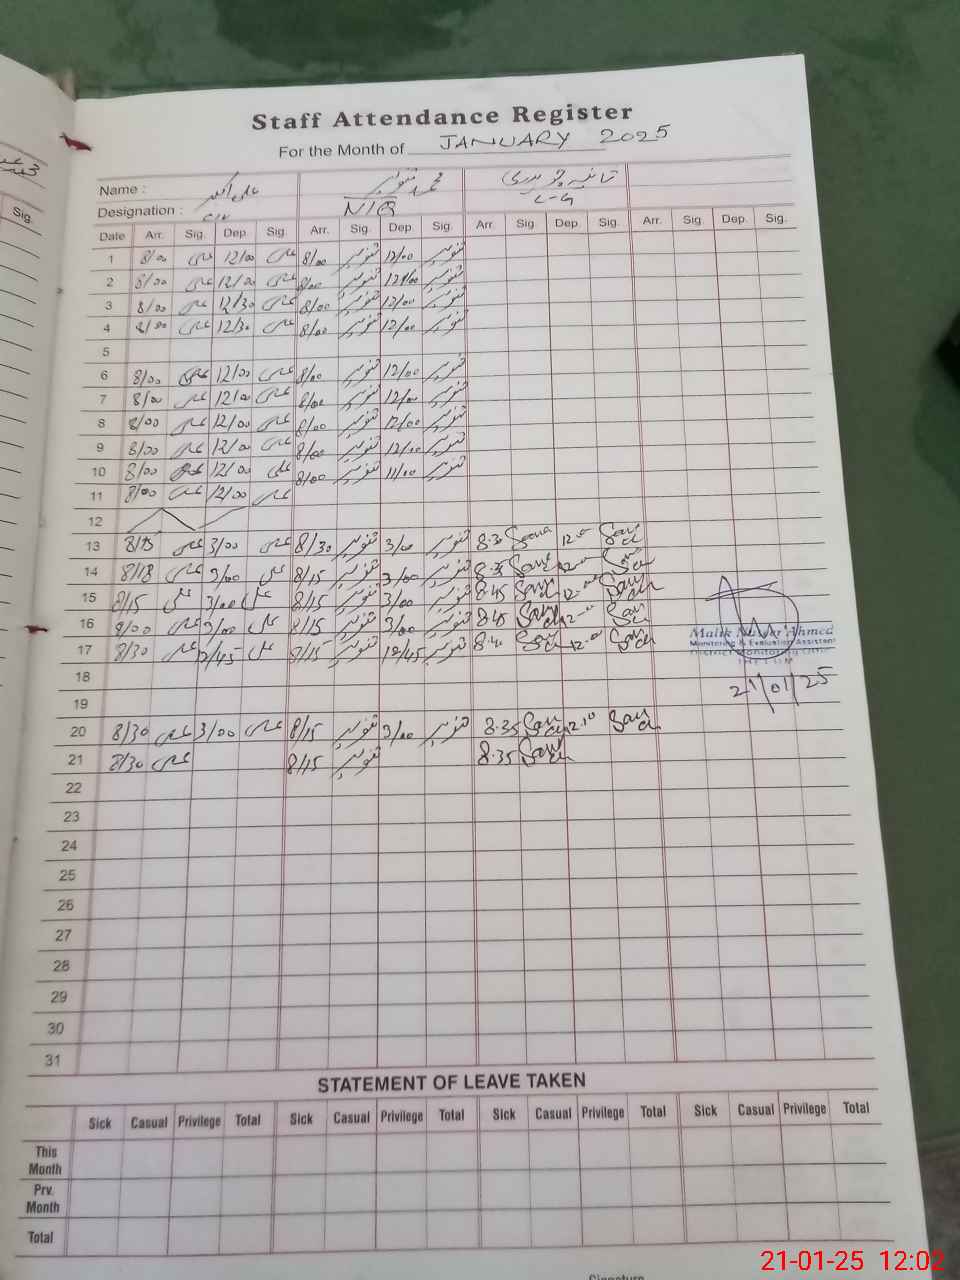 Staff Attendance Register
For the Month of JANUARY 2025
Sig.
Name : علی اکبر محمد تنویر
Designation : N/Q L-G
Date Arr. Sig. Dep. Sig. Arr. Sig. Dep. Sig. Arr. Sig. Dep. Sig. Arr. Sig. Dep. Sig.
1 8/00 علی 12/00 علی 8/00 تنویر 12/00 تنویر
2 8/00 علی 12/00 علی 8/00 تنویر 12/00 تنویر
3 8/00 علی 12/30 علی 8/00 تنویر 12/00 تنویر
4 8/00 علی 12/30 علی 8/00 تنویر 12/00 تنویر
5
6 8/00 علی 12/00 علی 8/00 تنویر 12/00 تنویر
7 8/00 علی 12/00 علی 8/00 تنویر 12/00 تنویر
8 8/00 علی 12/00 علی 8/00 تنویر 12/00 تنویر
9 8/00 علی 12/00 علی 8/00 تنویر 12/00 تنویر
10 8/00 علی 12/00 علی 8/00 تنویر 11/00 تنویر
11 8/00 علی 12/00 علی
12
13 8/15 علی 3/00 علی 8/30 تنویر 3/00 تنویر 8.30
14 8/18 علی 3/00 علی 8/15 تنویر 3/00 تنویر 8.35
15 8/15 علی 3/00 علی 8/15 تنویر 3/00 تنویر 8.45
16 8/00 علی 3/00 علی 8/15 تنویر 3/00 تنویر 8.45
17 8/30 علی 12/45 علی 8/15 تنویر 12/45 تنویر 8.40
Malik Nuser Ahmed
Monitoring & Evaluation Assistant
District Monitoring Office
JHELUM
21/01/25
18
19
20 8/30 علی 3/00 علی 8/15 تنویر 3/00 تنویر 8.35 12.10
21 8/30 علی 8/15 تنویر 8.35
22
23
24
25
26
27
28
29
30
31
STATEMENT OF LEAVE TAKEN
Sick Casual Privilege Total Sick Casual Privilege Total Sick Casual Privilege Total Sick Casual Privilege Total
This Month
Prv. Month
Total
Signature
21-01-25 12:02